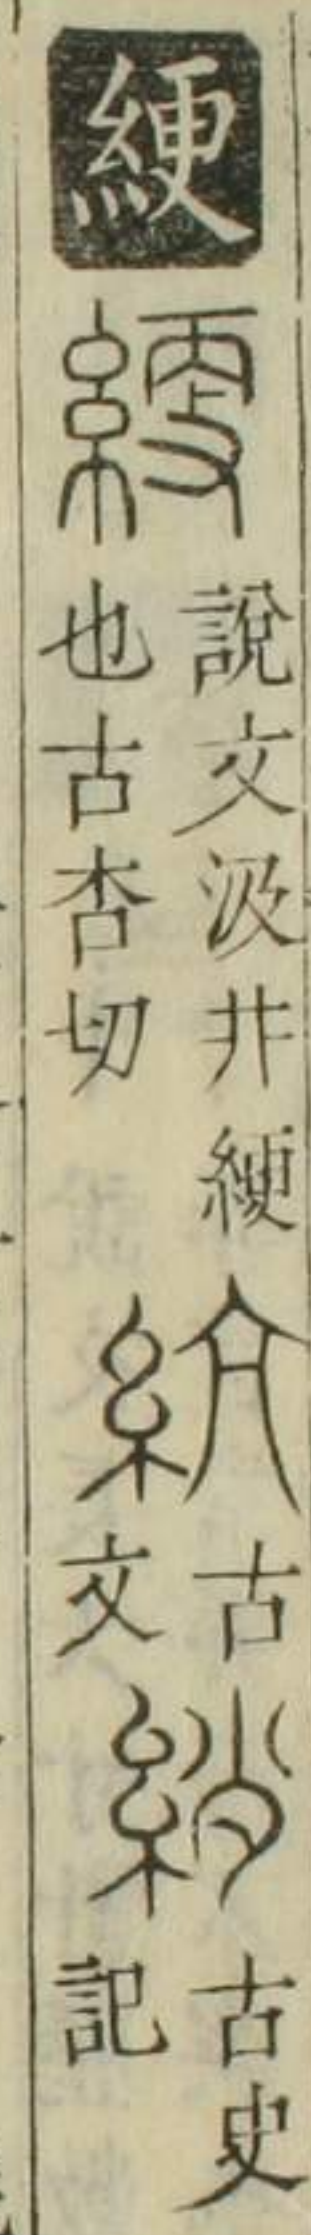 綆
綆
說文汲井綆
也古杏切
古
文
古史
記